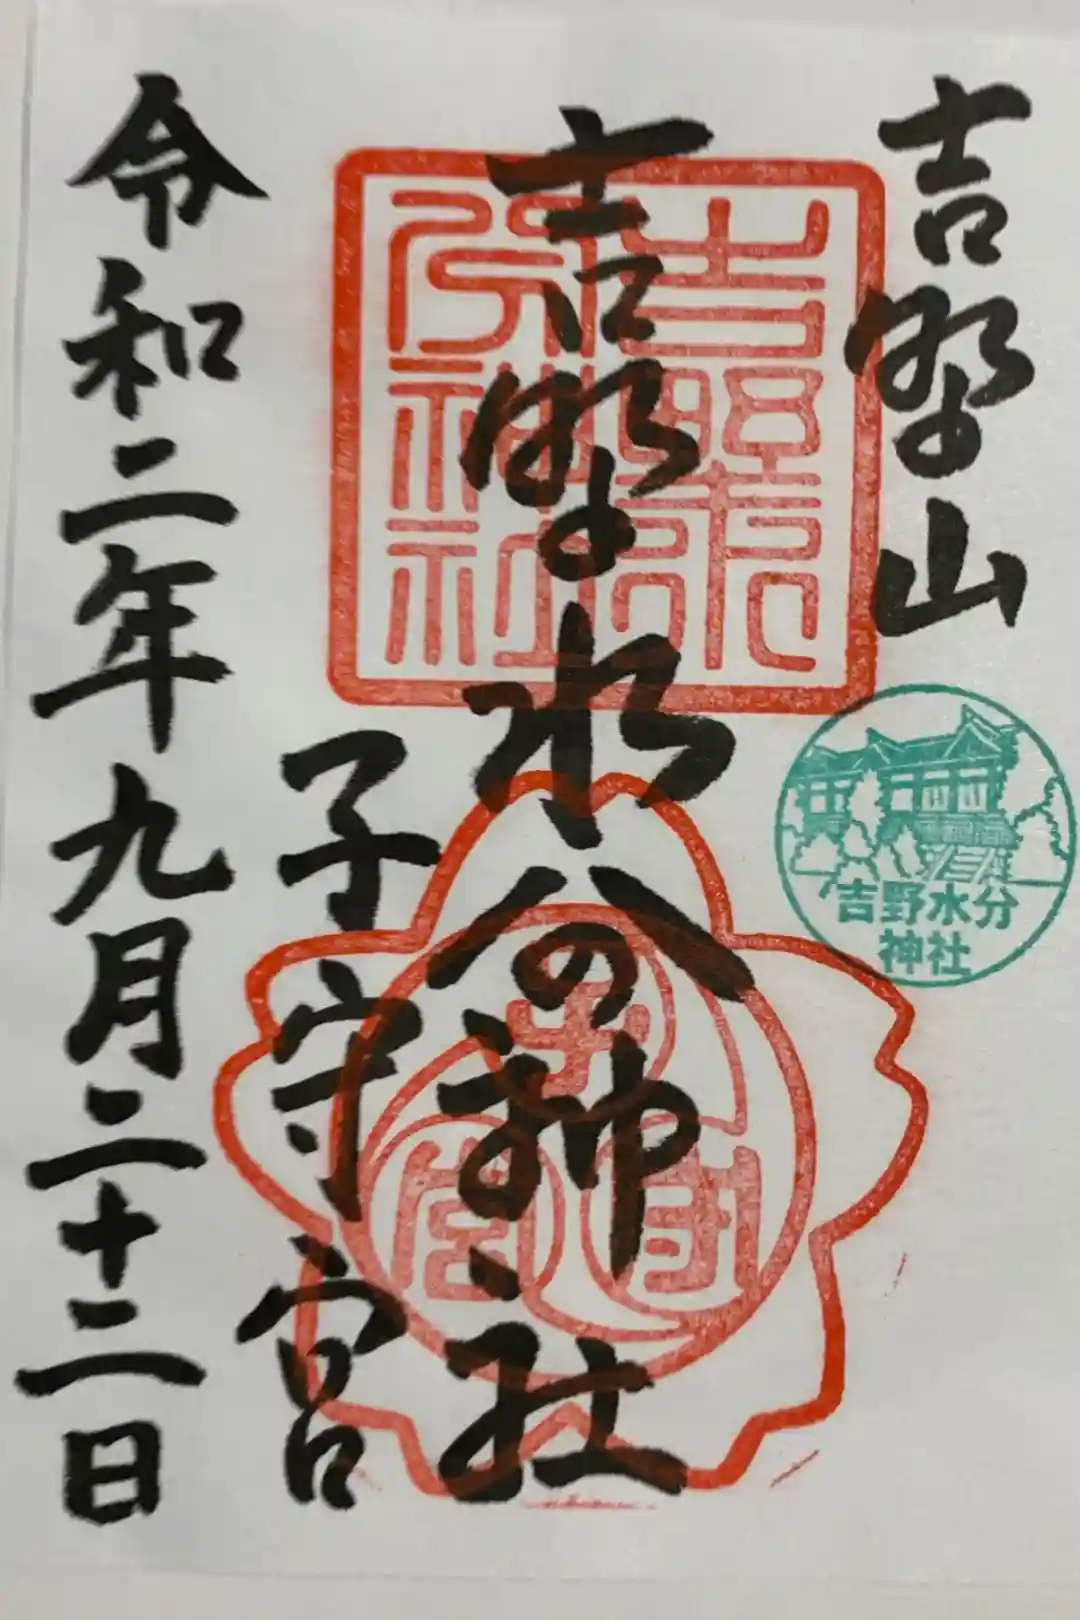 吉野山
吉野水分神社
子守宮
令和二年九月二十二日
吉野水分神社
子守宮
吉野水分
神社